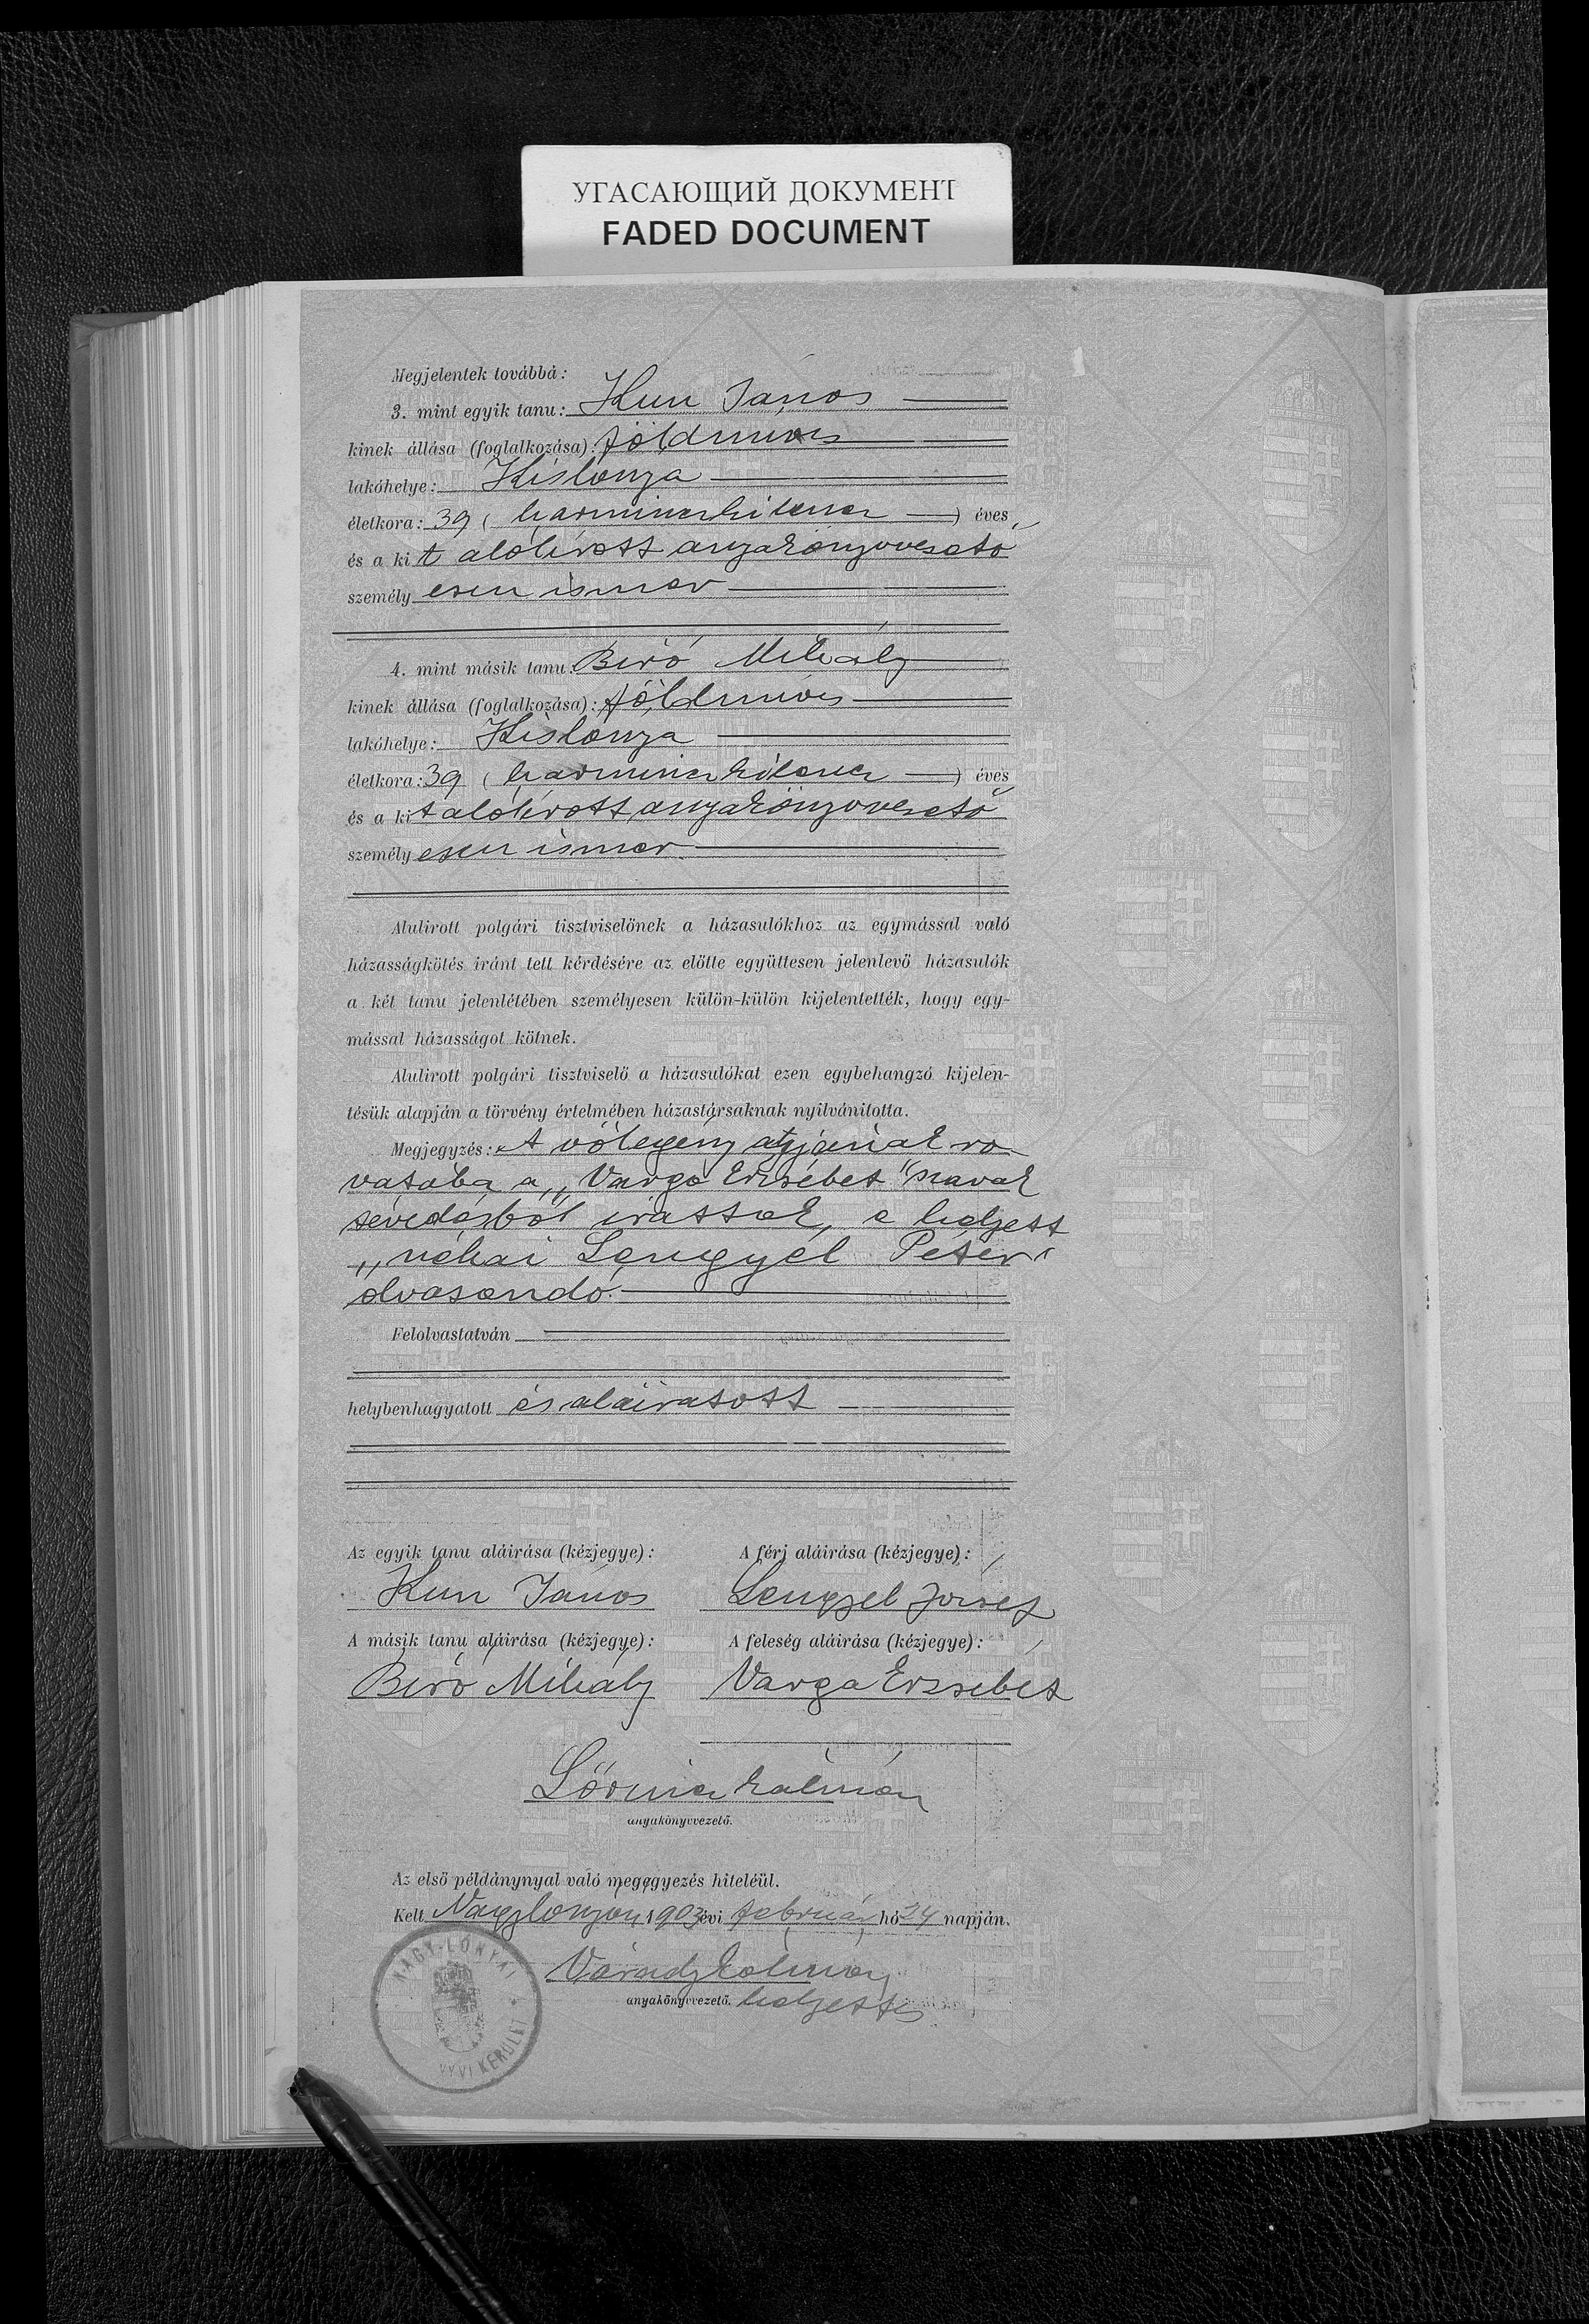 УГАСАЮЩИЙ ДОКУМЕНТ
FADED DOCUMENT
Megjelentek továbbá:
3. mint egyik tanu: Kun János
kinek állása (foglalkozása): földmíves
lakóhelye: Kislónya
életkora: 39 (harminczkilencz) éves,
és a kit alólírott anyakönyvvezető
személyesen ismer
4. mint másik tanu: Biró Mihály
kinek állása (foglalkozása): földmíves
lakóhelye: Kislónya
életkora: 39 (harminczkilencz) éves
és a kit alólírott anyakönyvvezető
személyesen ismer.
Alulirott polgári tisztviselőnek a házasulókhoz az egymással való
házasságkötés iránt tett kérdésére az előtte együttesen jelenlevő házasulók
a két tanu jelenlétében személyesen külön-külön kijelentették, hogy egy-
mással házasságot kötnek.
Alulirott polgári tisztviselő a házasulókat ezen egybehangzó kijelen-
tésük alapján a törvény értelmében házastársaknak nyilvánitotta.
Megjegyzés: A vőlegény atyjának ro-
vatába a „Varga Erzsébet" szavak
tévedésből irattak, e helyett
„néhai Lengyel Péter"
olvasandó.
Felolvastatván
helybenhagyatott és aláiratott
Az egyik tanu aláirása (kézjegye): A férj aláirása (kézjegye):
Kun János Lengyel József
A másik tanu aláirása (kézjegye): A feleség aláirása (kézjegye):
Biró Mihály Varga Erzsébet
Lőrincz Kálmán
anyakönyvvezető.
Az első példánynyal való megegyezés hiteléül.
Kelt Nagylónyán, 1903 évi február hó 24 napján.
Várady Kálmán
anyakönyvvezető. helyettes
NAGY-LÓNYAI
KERÜLET